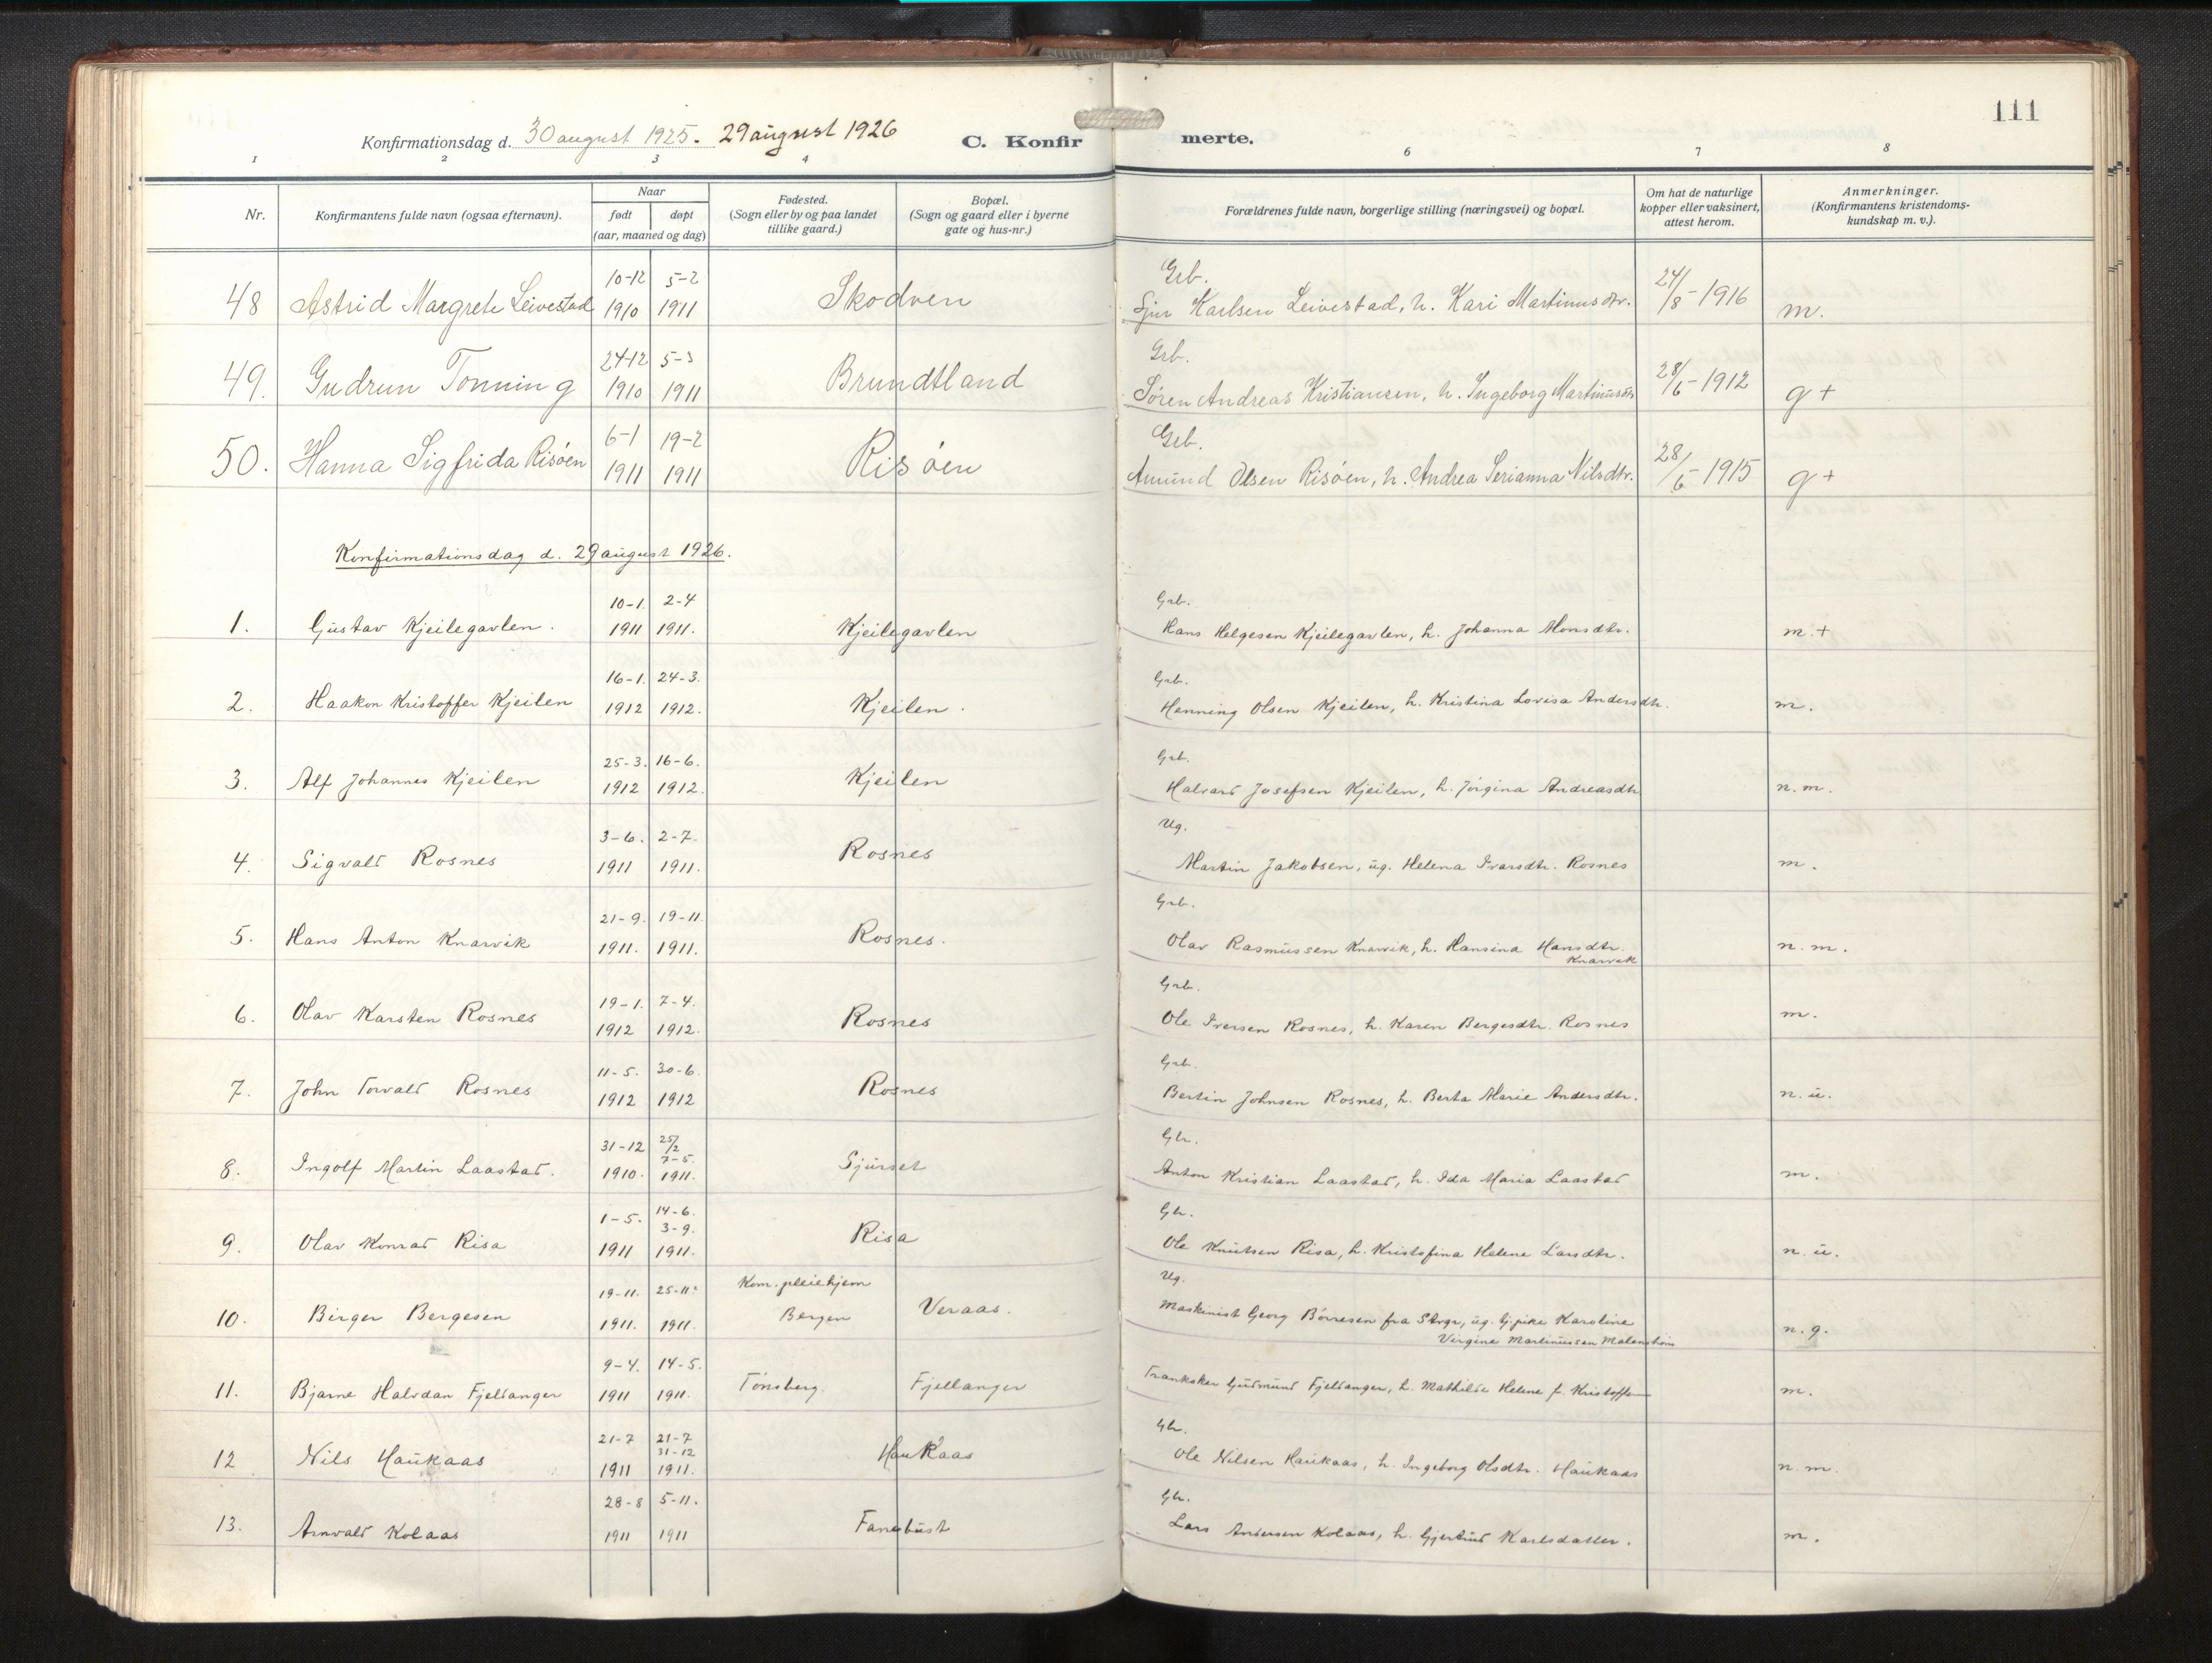 111
Konfirmationsdag d. 30 august 1925. 29 august 1926 C. Konfir merte.
1 2 3 4 6 7 8
Nr. Konfirmantens fulde navn (ogsaa efternavn). Naar født døpt (aar, maaned og dag) Fødested. (Sogn eller by og paa landet tillike gaard.) Bopæl. (Sogn og gaard eller i byerne gate og hus-nr.) Forældrenes fulde navn, borgerlige stilling (næringsvei) og bopæl. Om hat de naturlige kopper eller vaksinert, attest herom. Anmerkninger. (Konfirmantens kristendomskundskap m. v.).
10-12 5-2 Grb. 24/8-1916
48 Astrid Margrete Leivestad 1910 1911 Skodven Sjur Karlsen Leivestad, h. Kari Martinusdtr. m.
24-12 5-3 Grb. 28/6-1912
49. Gudrun Tonning 1910 1911 Brundtland Søren Andreas Kristiansen, h. Ingeborg Martinusdtr g+
6-1 19-2 Grb. 28/6-1915
50. Hanna Sigfrida Risøen 1911 1911 Risøen Amund Olsen Risøen, h. Andrea Serianna Nilsdtr. g+
Konfirmationsdag d. 29 august 1926.
10-1. 2-4 Grb.
1. Gustav Kjeilegavlen. 1911 1911. Kjeilegavlen Hans Helgesen Kjeilegavlen, h. Johanna Monsdtr. m.+
16-1. 24-3. Grb.
2. Haakon Kristoffer Kjeilen 1912 1912. Kjeilen. Henning Olsen Kjeilen, h. Kristina Lovisa Andersdtr. m.
25-3. 16-6. Grb.
3. Alf Johannes Kjeilen 1912 1912. Kjeilen Halvard Josefsen Kjeilen, h. Jørgina Andreasdtr n.m.
3-6. 2-7. Ug.
4. Sigvald Rosnes 1911 1911. Rosnes Martin Jakobsen, ug. Helena Ivarsdtr. Rosnes m.
21-9. 19-11. Grb.
5. Hans Anton Knarvik 1911. 1911. Rosnes. Olav Rasmussen Knarvik, h. Hansina Hansdtr. n.m.
Knarvik
19-1. 7-4. Grb.
6. Olav Karsten Rosnes 1912 1912. Rosnes Ole Iversen Rosnes, h. Karen Bergesdtr. Rosnes m.
11-5. 30-6. Grb.
7. John Torvald Rosnes 1912 1912 Rosnes Bertin Johnsen Rosnes, h. Berta Marie Andersdtr. n.u.
31-12 25/2 7-5. Gbr.
8. Ingolf Martin Laastad. 1910. 1911. Sjurset Anton Kristian Laastad, h. Ida Maria Laastad m.
1-5. 14-6. 3-9. Gbr.
9. Olav Konrad Risa 1911 1911. Risa Ole Knutsen Risa, h. Kristofina Helene Larsdtr. n.u.
19-11. 25-11. Kom. pleiehjem Ug.
10. Birger Bergesen 1911. 1911. Bergen Veraas. Maskinist Georg Børresen fra Stvgr, ug. tj.pike Karoline n.g.
Virgine Martinussen
9-4. 14-5.
11. Bjarne Halvdan Fjeldanger 1911 1911. Tønsberg. Fjellanger Trankoker Gudmund Fjeldanger, h. Mathilde Helene f. m.
21-7 21-7 31-12 Gbr.
12 Nils Haukaas 1911 1911. Haukaas Ole Nilsen Haukaas, h. Ingeborg Olsdtr. Haukaas n.m.
28-8 5-11. Gbr.
13. Arnvald Kolaas 1911 1911 Fanebust Lars Andersen Kolaas, h. Gjertrud Karlsdatter. m.